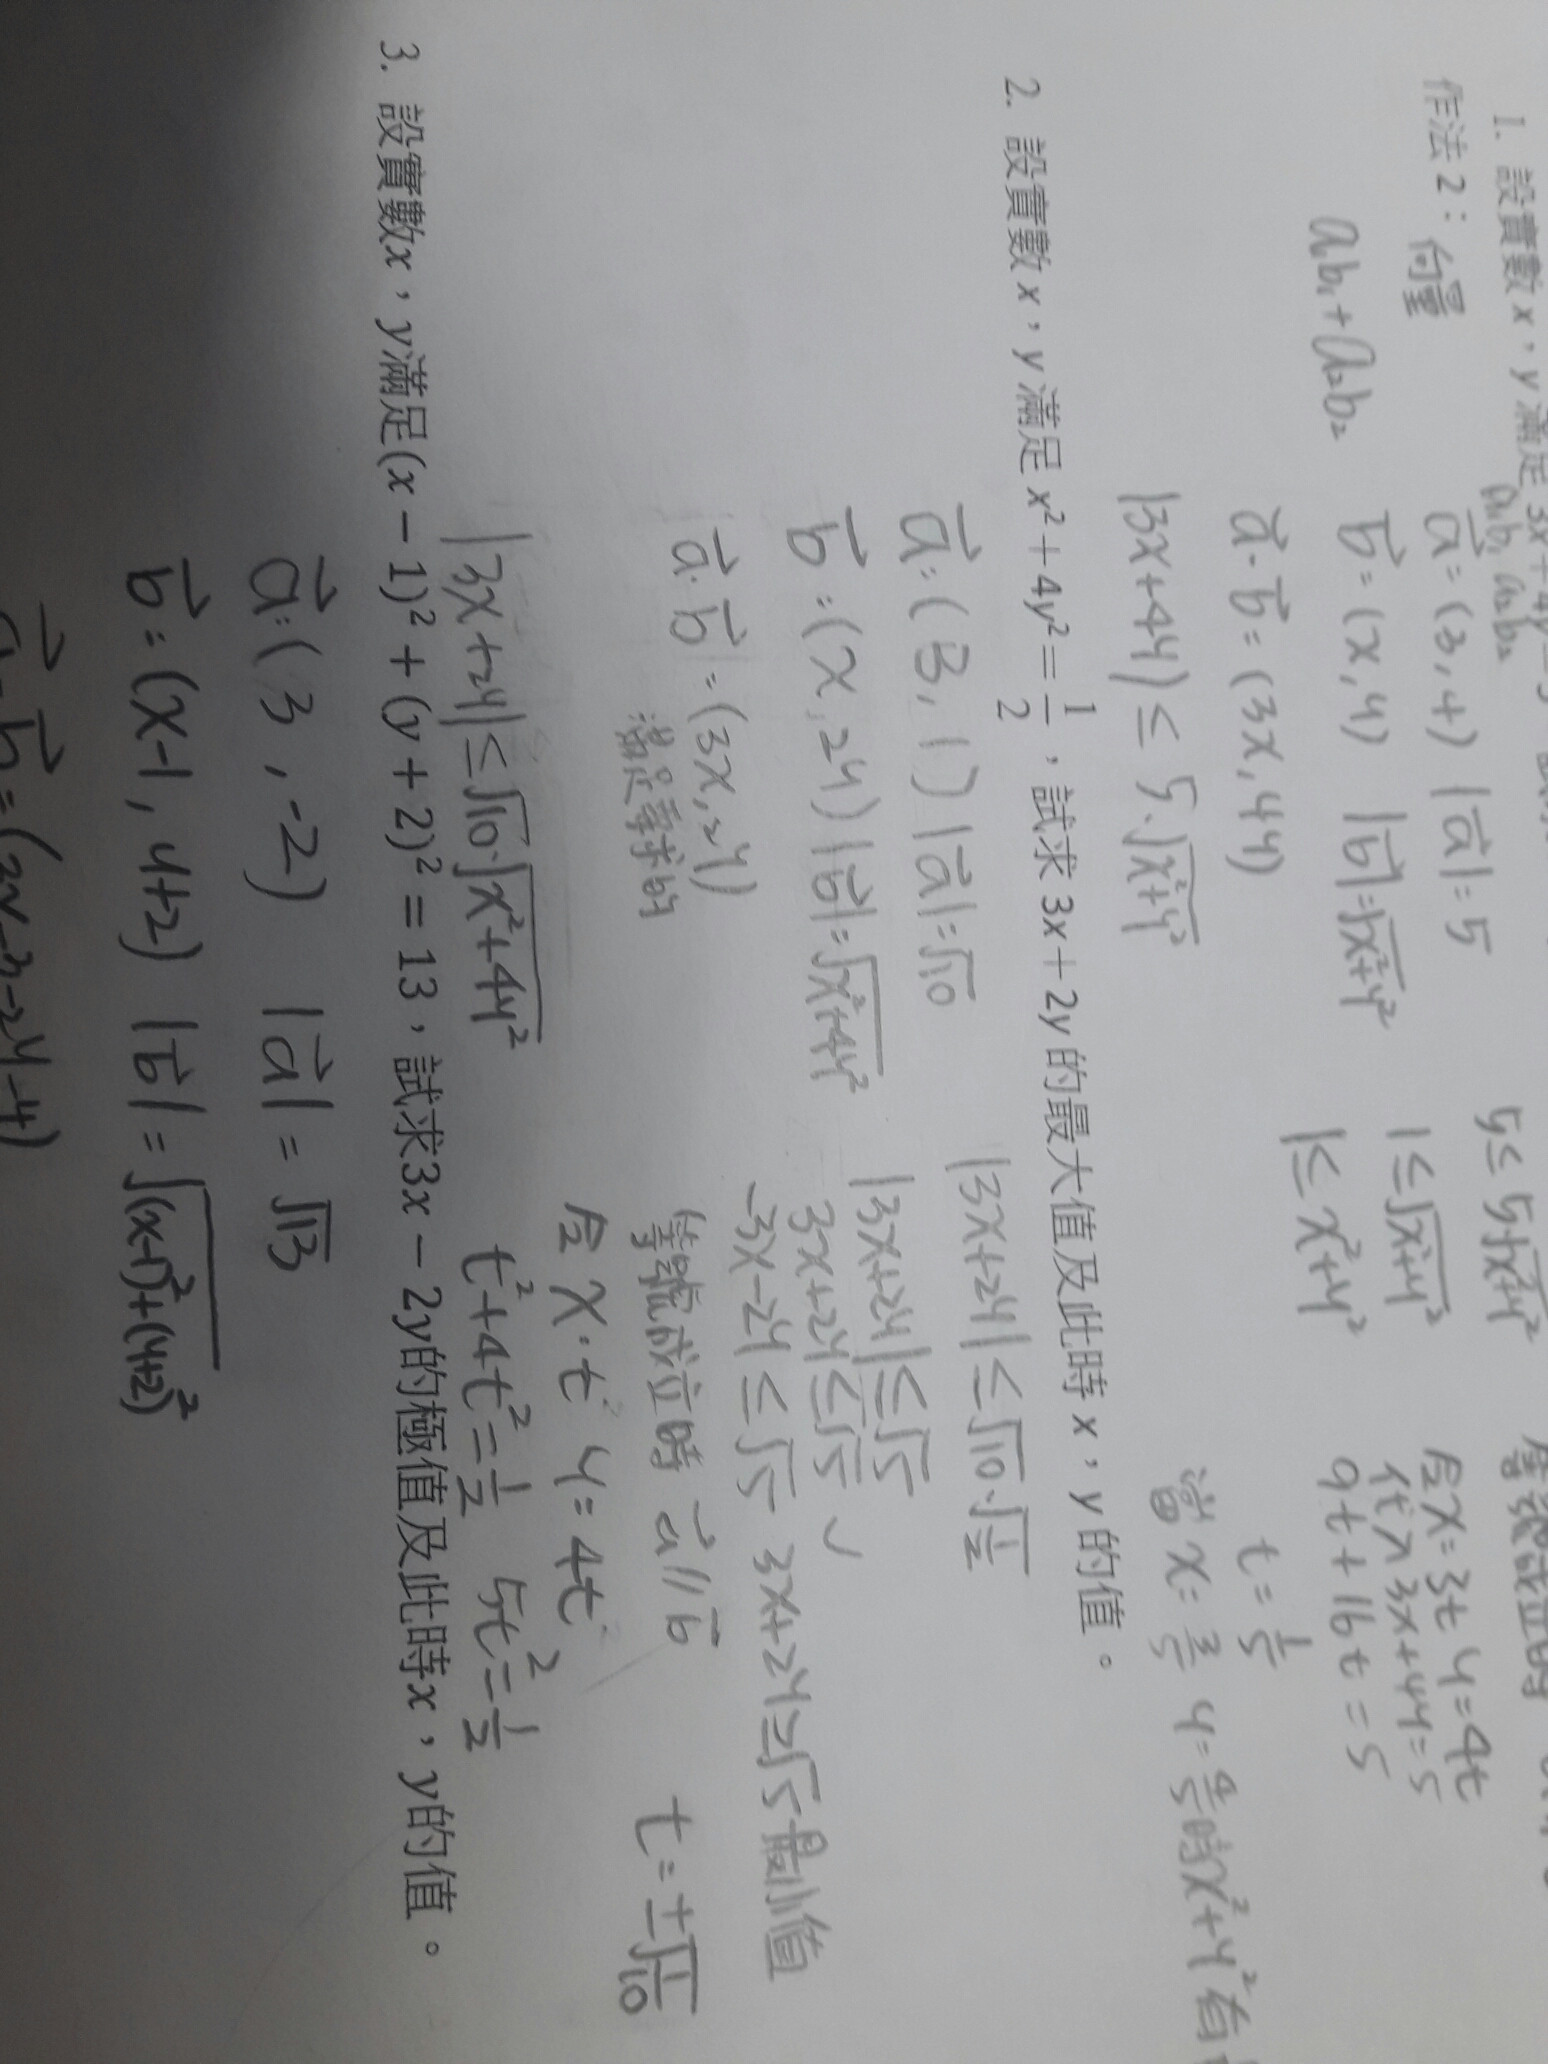 1. 設實數 x，y 滿足 3x+4y=5
a₁b₁ a₂b₂
作法2：向量
a⃗=(3,4) |a⃗|=5
a₁b₁+a₂b₂
b⃗=(x,y) |b⃗|=√x²+y²
a⃗·b⃗=(3x,4y)
|3x+4y|≤5·√x²+y²
5≤5√x²+y²
1≤√x²+y²
1≤x²+y²
令x=3t y=4t
代入3x+4y=5
9t+16t=5
t=1/5
當x=3/5 y=4/5時x²+y²有
2. 設實數 x，y 滿足 x²+4y²=1/2，試求 3x+2y 的最大值及此時 x，y 的值。
a⃗:(3,1) |a⃗|=√10
b⃗:(x,2y) |b⃗|=√x²+4y²
a⃗·b⃗=(3x,2y)
滿足要求的
|3x+2y|≤√10·√x²+4y²
|3x+2y|≤√10·√1/2
|3x+2y|≤√5
3x+2y≤√5 ✓
-3x-2y≤√5 3x+2y≥√5最小值
等號成立時 a⃗//b⃗
令x·t y=4t
t²+4t²=1/2 5t²=1/2
t=±√1/10
3. 設實數x，y滿足(x−1)²+(y+2)²=13，試求3x−2y的極值及此時x，y的值。
a⃗:(3,-2) |a⃗|=√13
b⃗:(x-1,y+2) |b⃗|=√(x-1)²+(y+2)²
a⃗·b⃗=(3x-3-2y-4)